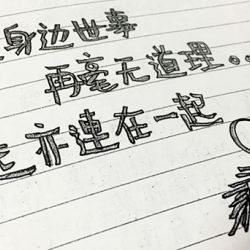 身边世事
再毫无道理。。
亦連在一起